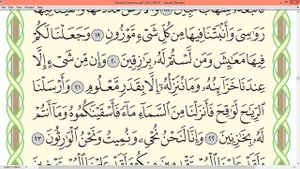 رَوَٰسِىَ وَأَنۢبَتْنَا فِيهَا مِن كُلِّ شَىْءٍ مَّوْزُونٍ ١٩ وَجَعَلْنَا لَكُمْ
فِيهَا مَعَٰيِشَ وَمَن لَّسْتُمْ لَهُۥ بِرَٰزِقِينَ ٢٠ وَإِن مِّن شَىْءٍ إِلَّا
عِندَنَا خَزَآئِنُهُۥ وَمَا نُنَزِّلُهُۥٓ إِلَّا بِقَدَرٍ مَّعْلُومٍ ٢١ وَأَرْسَلْنَا
ٱلرِّيَٰحَ لَوَٰقِحَ فَأَنزَلْنَا مِنَ ٱلسَّمَآءِ مَآءً فَأَسْقَيْنَٰكُمُوهُ وَمَآ أَنتُمْ
لَهُۥ بِخَٰزِنِينَ ٢٢ وَإِنَّا لَنَحْنُ نُحْىِۦ وَنُمِيتُ وَنَحْنُ ٱلْوَٰرِثُونَ ٢٣